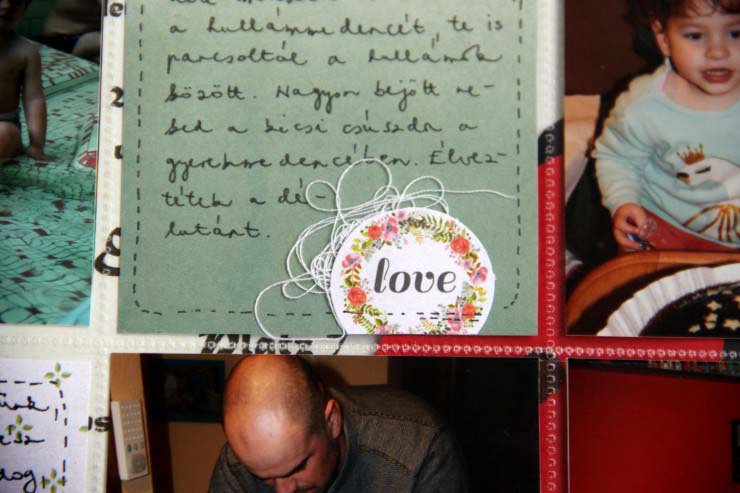 a hullámmedencét, te is
pancsoltál a hullámok
között. Nagyon bejött ne-
ked a kicsi csúszda a
gyerekmedencében. Élvez-
tétek a dé
lutánt.
love